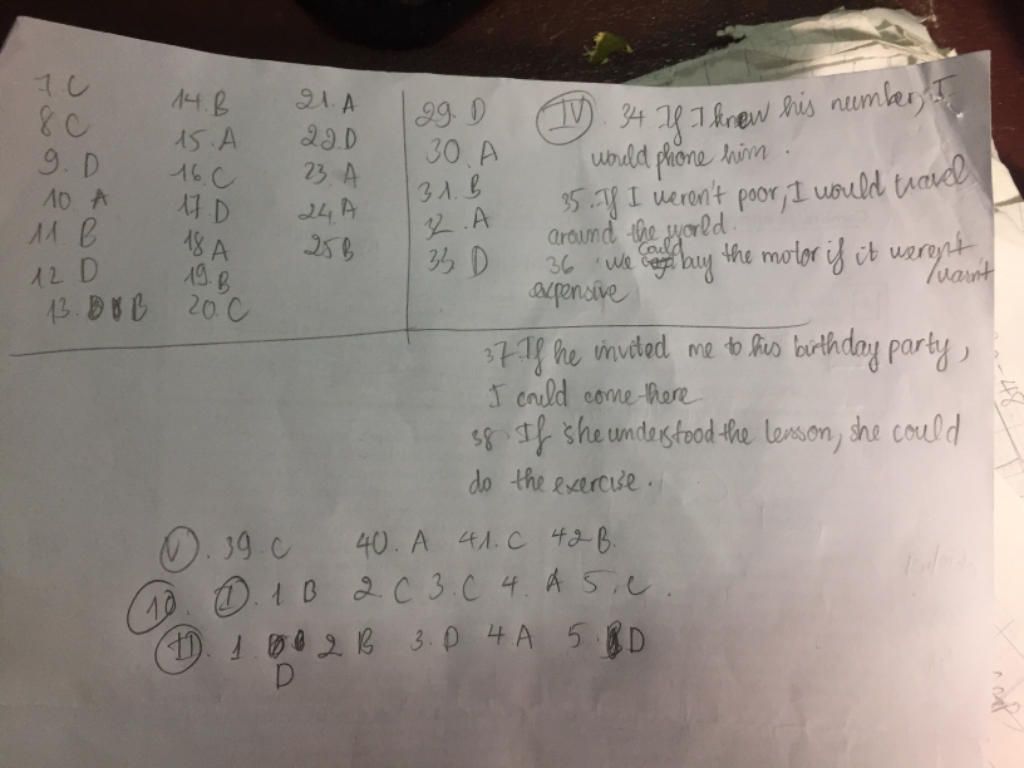 7. C
8 C
9. D
10 A
11 B
12 D
13. B
14. B
15. A
16. C
17. D
18 A
19. B
20. C
21. A
22 D
23. A
24. A
25 B
29. D
30. A
31. B
32. A
33 D
IV. 34 If I knew his number, I
would phone him.
35. If I weren't poor, I would travel
around the world.
36. we could buy the motor if it weren't
/wasn't
expensive
37. If he invited me to his birthday party,
I could come there
38 If she understood the lesson, she could
do the exercise.
V. 39. C 40. A 41. C 42 B.
10. I. 1 B 2 C 3. C 4. A 5. C.
II. 1. 2 B 3. D 4 A 5. D
D